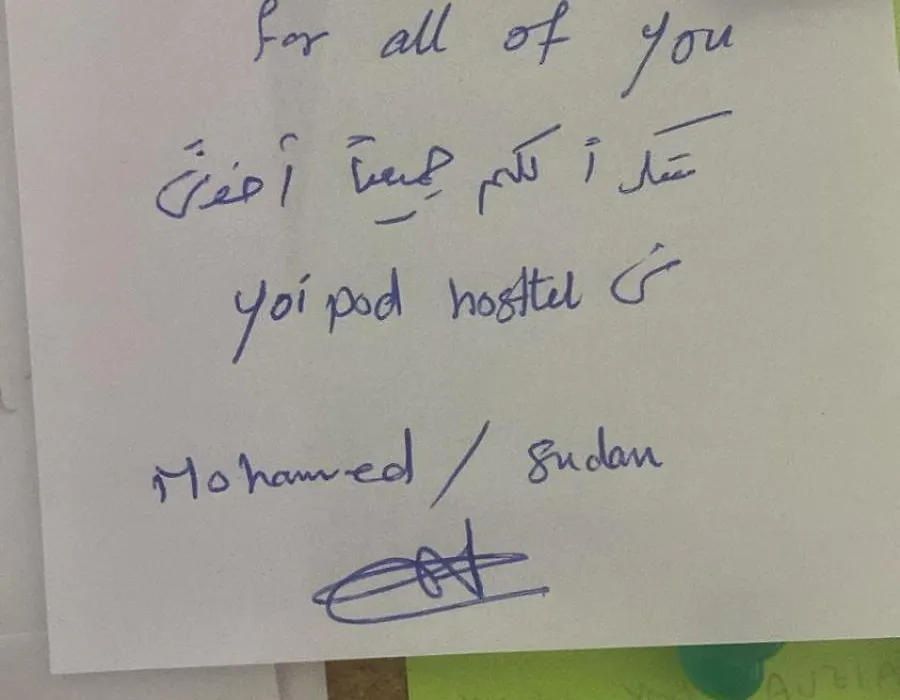 for all of you
شكراً لكم جميعاً أخوتي
في yoi pod hosttel
Mohamed / Sudan